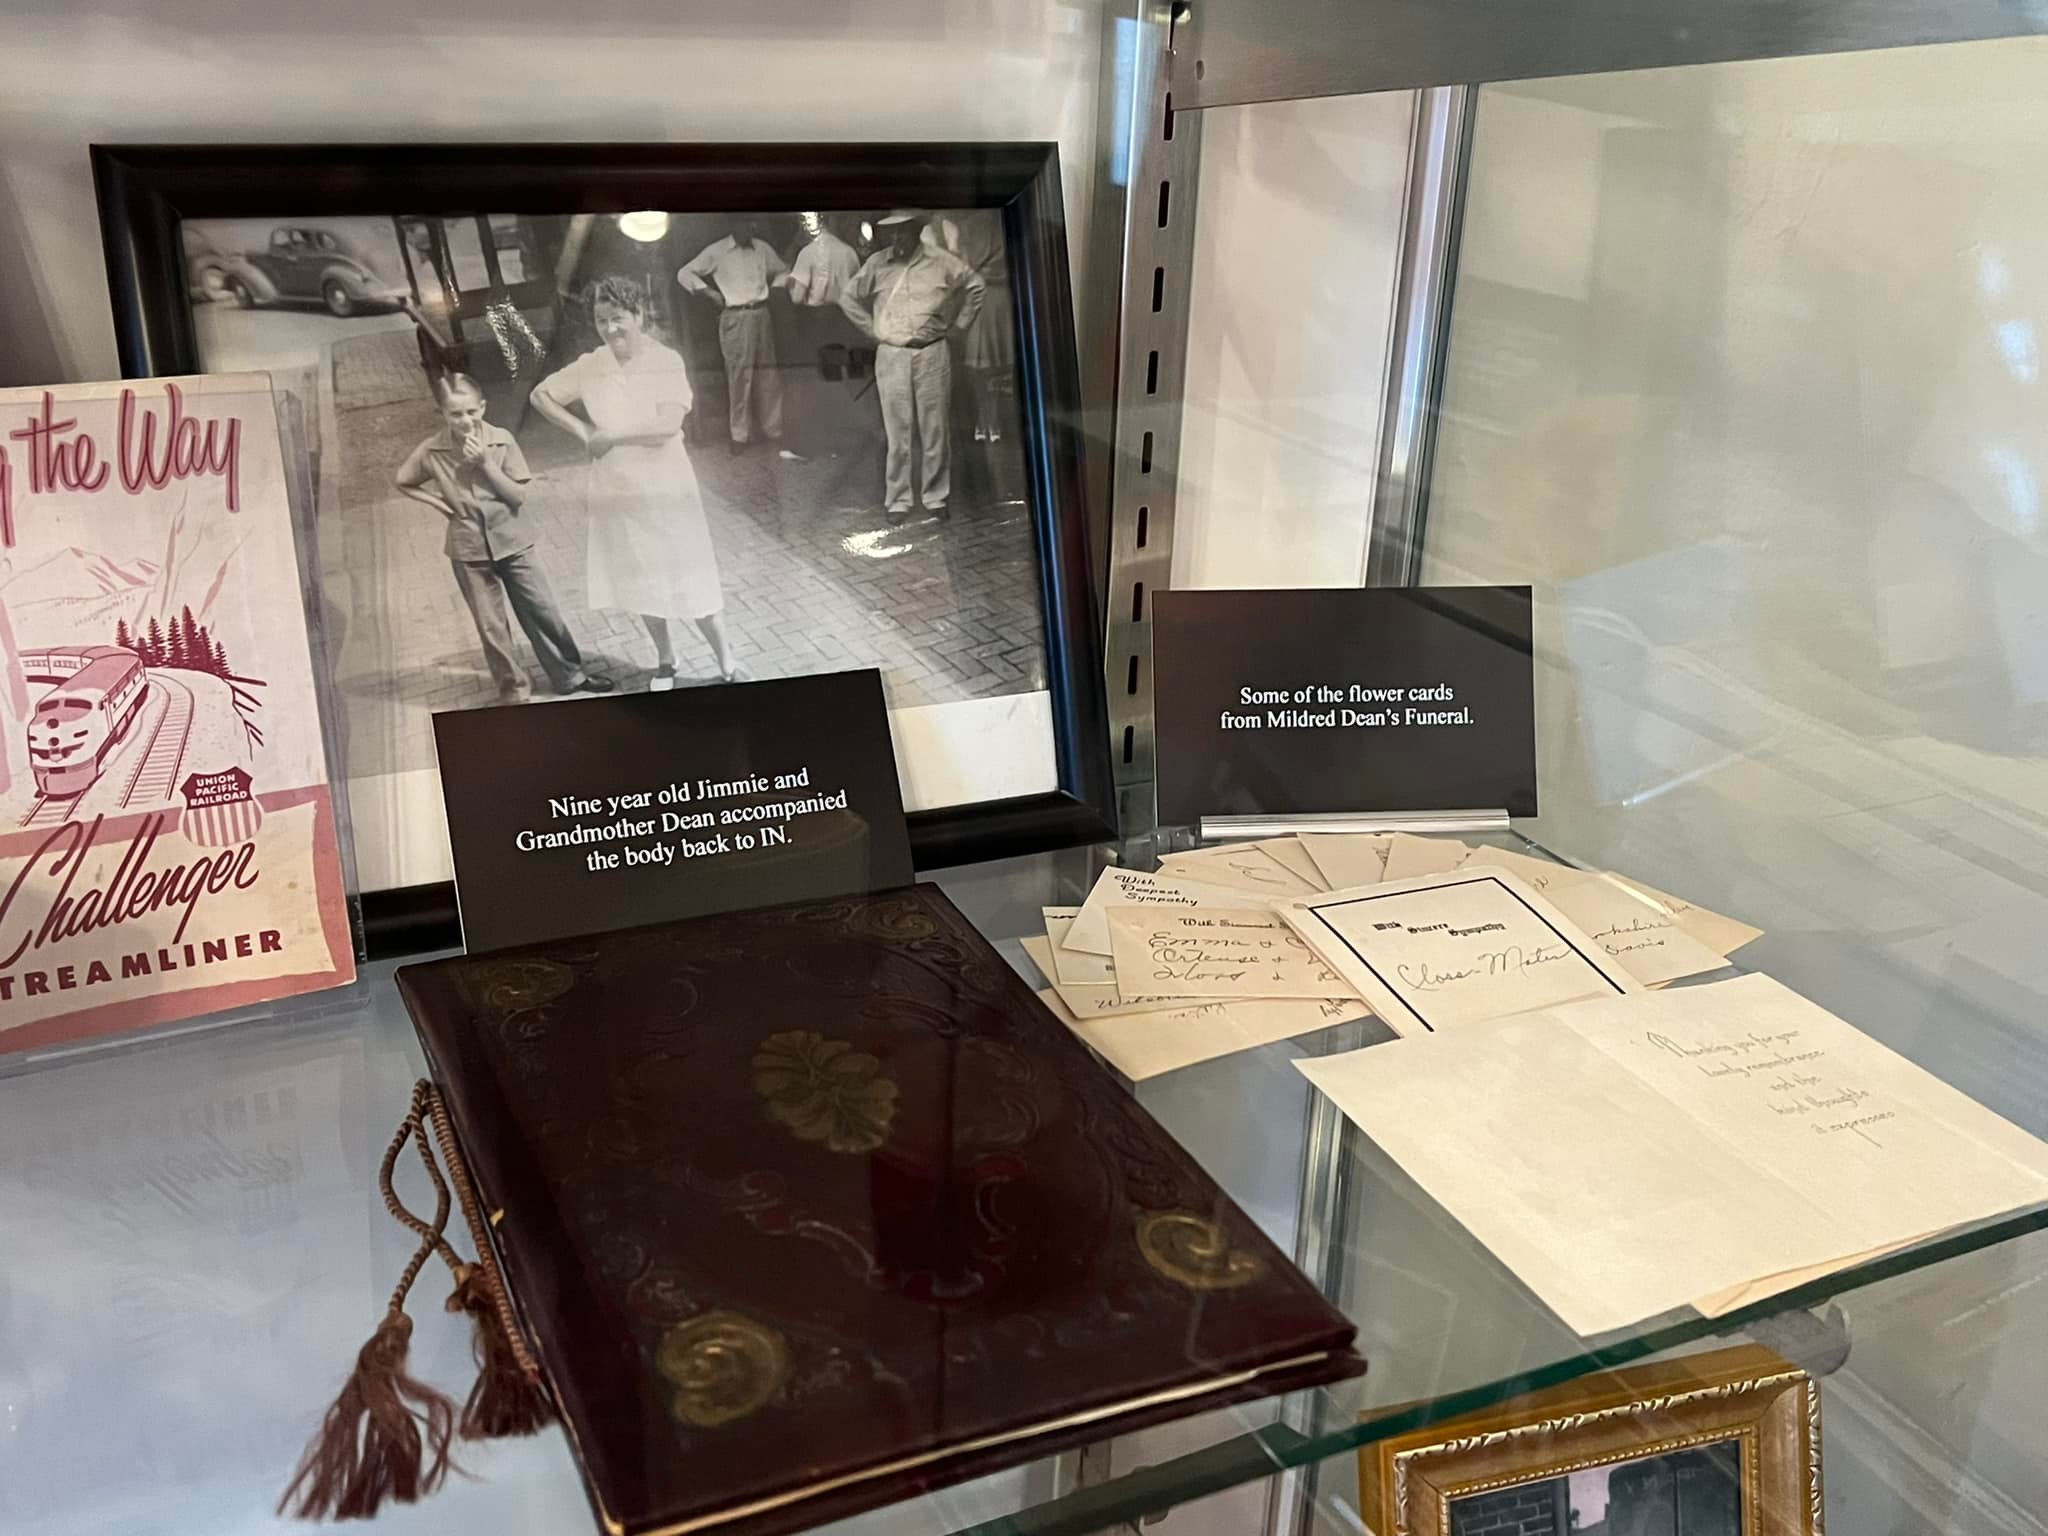 the Way
UNION
PACIFIC
RAILROAD
Challenger
TREAMLINER
Nine year old Jimmie and
Grandmother Dean accompanied
the body back to IN.
Some of the flower cards
from Mildred Dean's Funeral.
With
Deepest
Sympathy
With
Emma &
Ortense &
With Sincere Sympathy
Class-Mates
Davis
Thanking you for your
lovely remembrance
and the
kind thoughts
it expresses